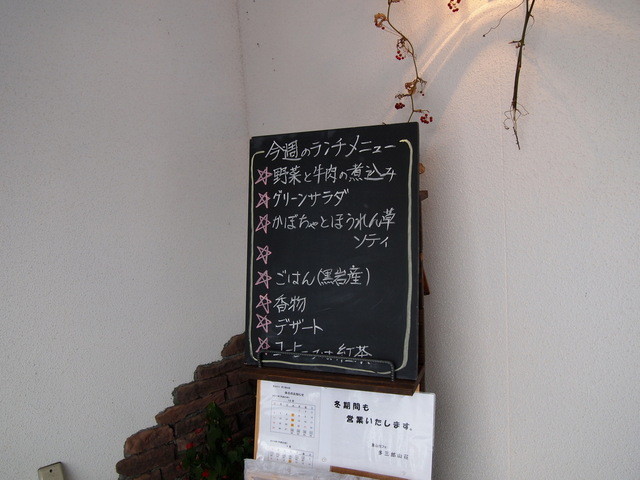 今週のランチメニュー
☆野菜と牛肉の煮込み
☆グリーンサラダ
☆かぼちゃとほうれん草
ソティ
☆
☆ごはん(黒岩産)
☆香物
☆デザート
☆コーヒー 紅茶
冬期間も
営業いたします。